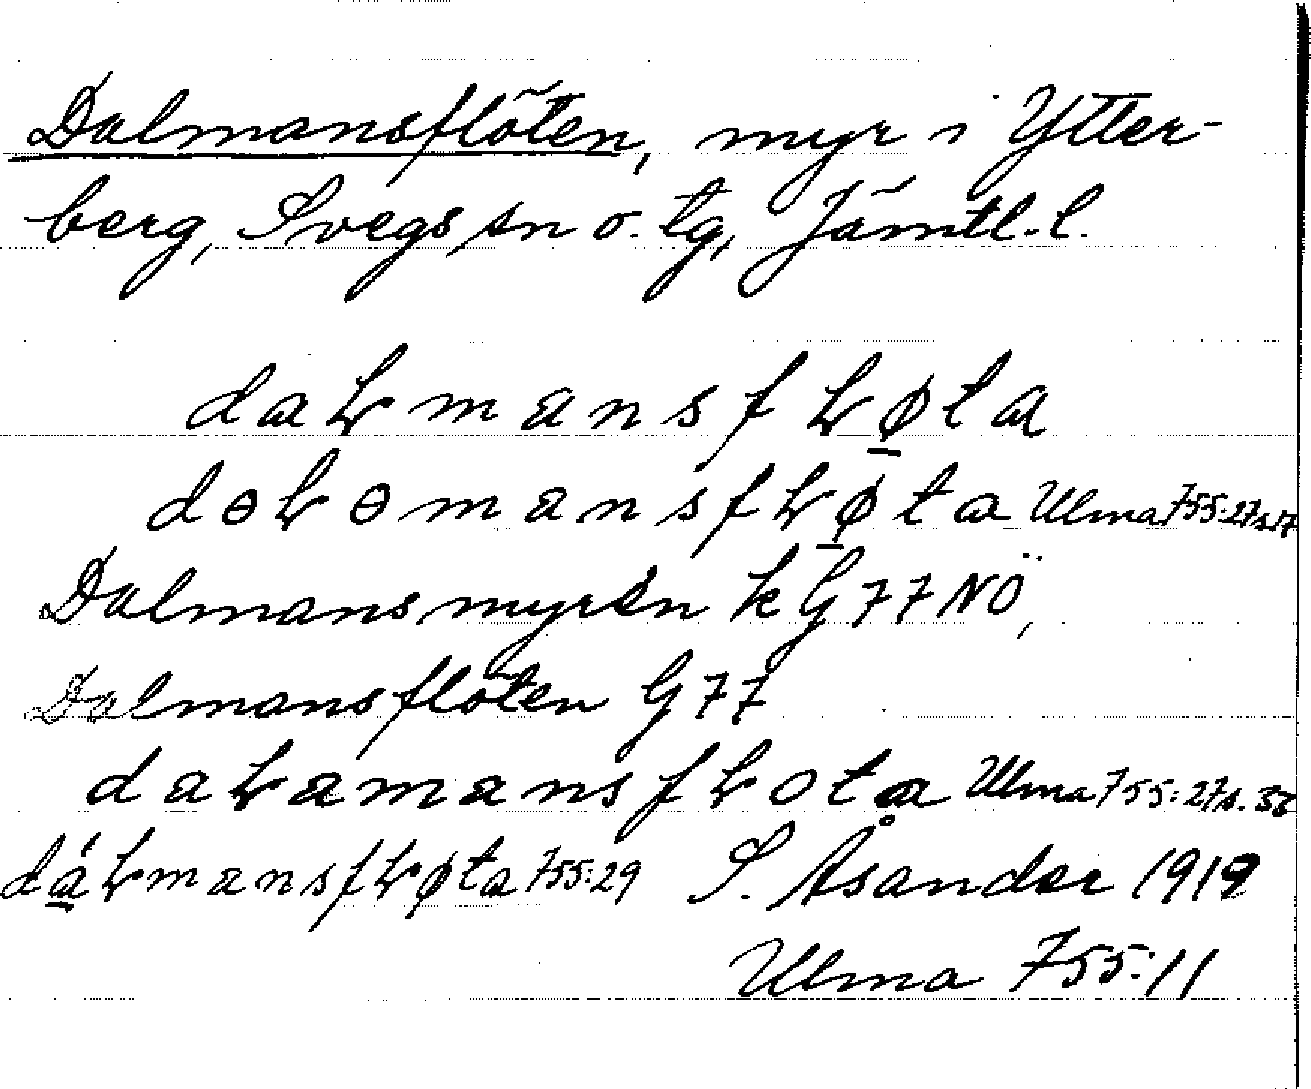 Dalmansflöten, myr i Ytter-
berg, Svegs sn o. tg, Jämtl. l.
daƚmansfƚøta
dɵƚɵmansfƚøta Ulma 755:27 s. 17
Dalmansmyren k G 77 NÖ,
Dalmansflöten G 77
daƚamansfƚota Ulma 755:27 s.
dáƚmansfƚøta 755:29 S. Åsander 1919
Ulma 755:11